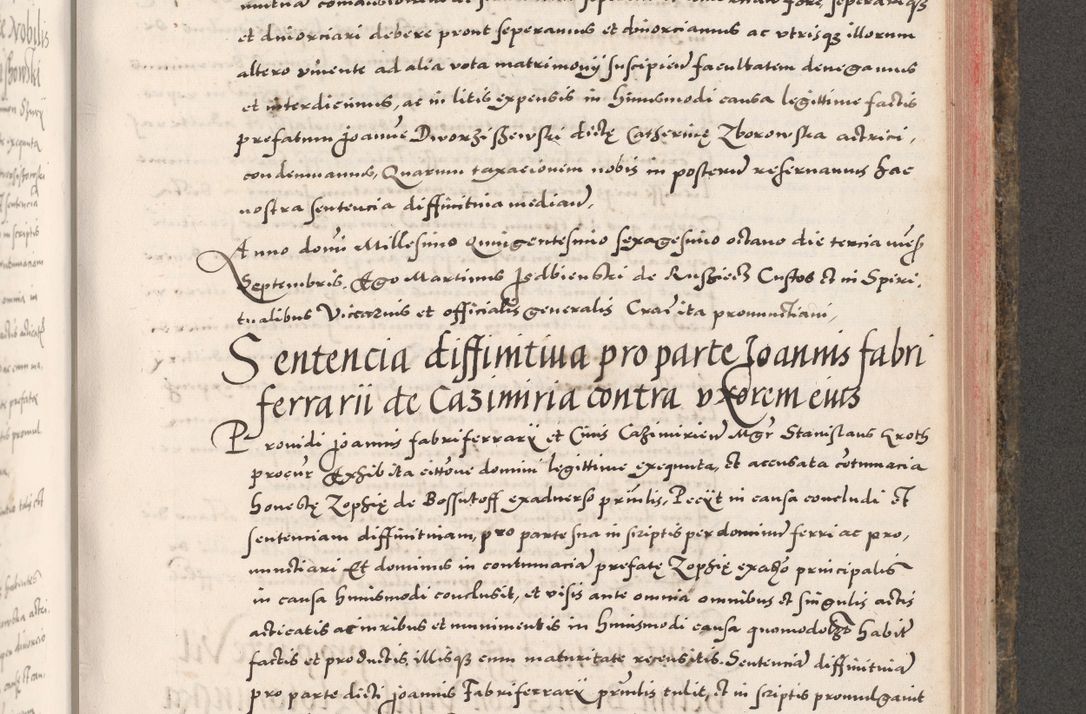 et divorciari debere prout seperamus et divorciamus ac vtrisqꝫ illorum
altero vivente ad alia vota matrimonÿ suscipiend facultatem denegamus
et interdicimus, ac in litis expensis in huiusmodi causa legittime factis
prefatum Joanne Dworzisshewski dictę Catherinę Zborowska actrici,
condemnamus, Quarum taxacionem nobis in posterum reservamus hac
nostra sentencia diffinitiva median,
Anno domi Millesimo Quingentesimo sexagesimo octavo die tercia mens
Septembris. Ego Martinus Jzdbienski de Rusziecz Custos et in Spiri,
tualibus Viccarius et officialis generalis Crac ita pronunctiavi,
Sentencia diffinitiua pro parte Joannis fabri
ferrarii de Cazimiria contra vxorem eius
Providi Joannis fabriferrarÿ et Civis Cazimirien Mgr Stanislaus Kroth
procur Exhibita cittone domini legittime exequuta, et accusata cotumacia
honestę Zophię de Bossutoff exadverso prinlis, Peciit in causa concludi et
sentenciam diffinitivam, pro parte sua in scriptis per dominum ferri ac pro,
nunctiari Et dominus in contumacia prefatę Zophię exadso principalis
in causa huiusmodi conclusit, et visis ante omnia omnibus et singulis actis
acticatis ac iuribus et munimentis in huiusmodi causa quomodolzt habit
factis et productis, illisqꝫ cum maturitate recensitis. Sentencia diffinitiva
pro parte dicti Joannis Fabriferrarÿ prinlis tulit, et in scriptis promulgavit